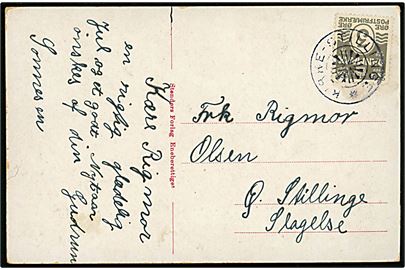 Kære Rigmor
en rigtig glædelig
Jul og et godt Nytaar
ønskes af din
Gudrun
Stenders Forlag Eneberettiget
Frk Rigmor
Olsen
G. Stillinge
Slagelse
ØRE
POSTFRIMÆRKE
ØRE